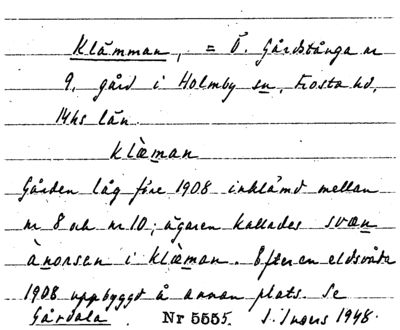 Klämman, = Ö. Gårdstånga nr
9, gård i Holmby sn, Frosta hd,
Mhs län.
klæman
Gården låg före 1908 inklämd mellan
nr 8 och nr 10; ägaren kallades svæn
ànorsan i klæman. Efter en eldsvåda
1908 uppbyggd å annan plats. Se
Gårdala. Nr 5555. S. Ingers 1948.